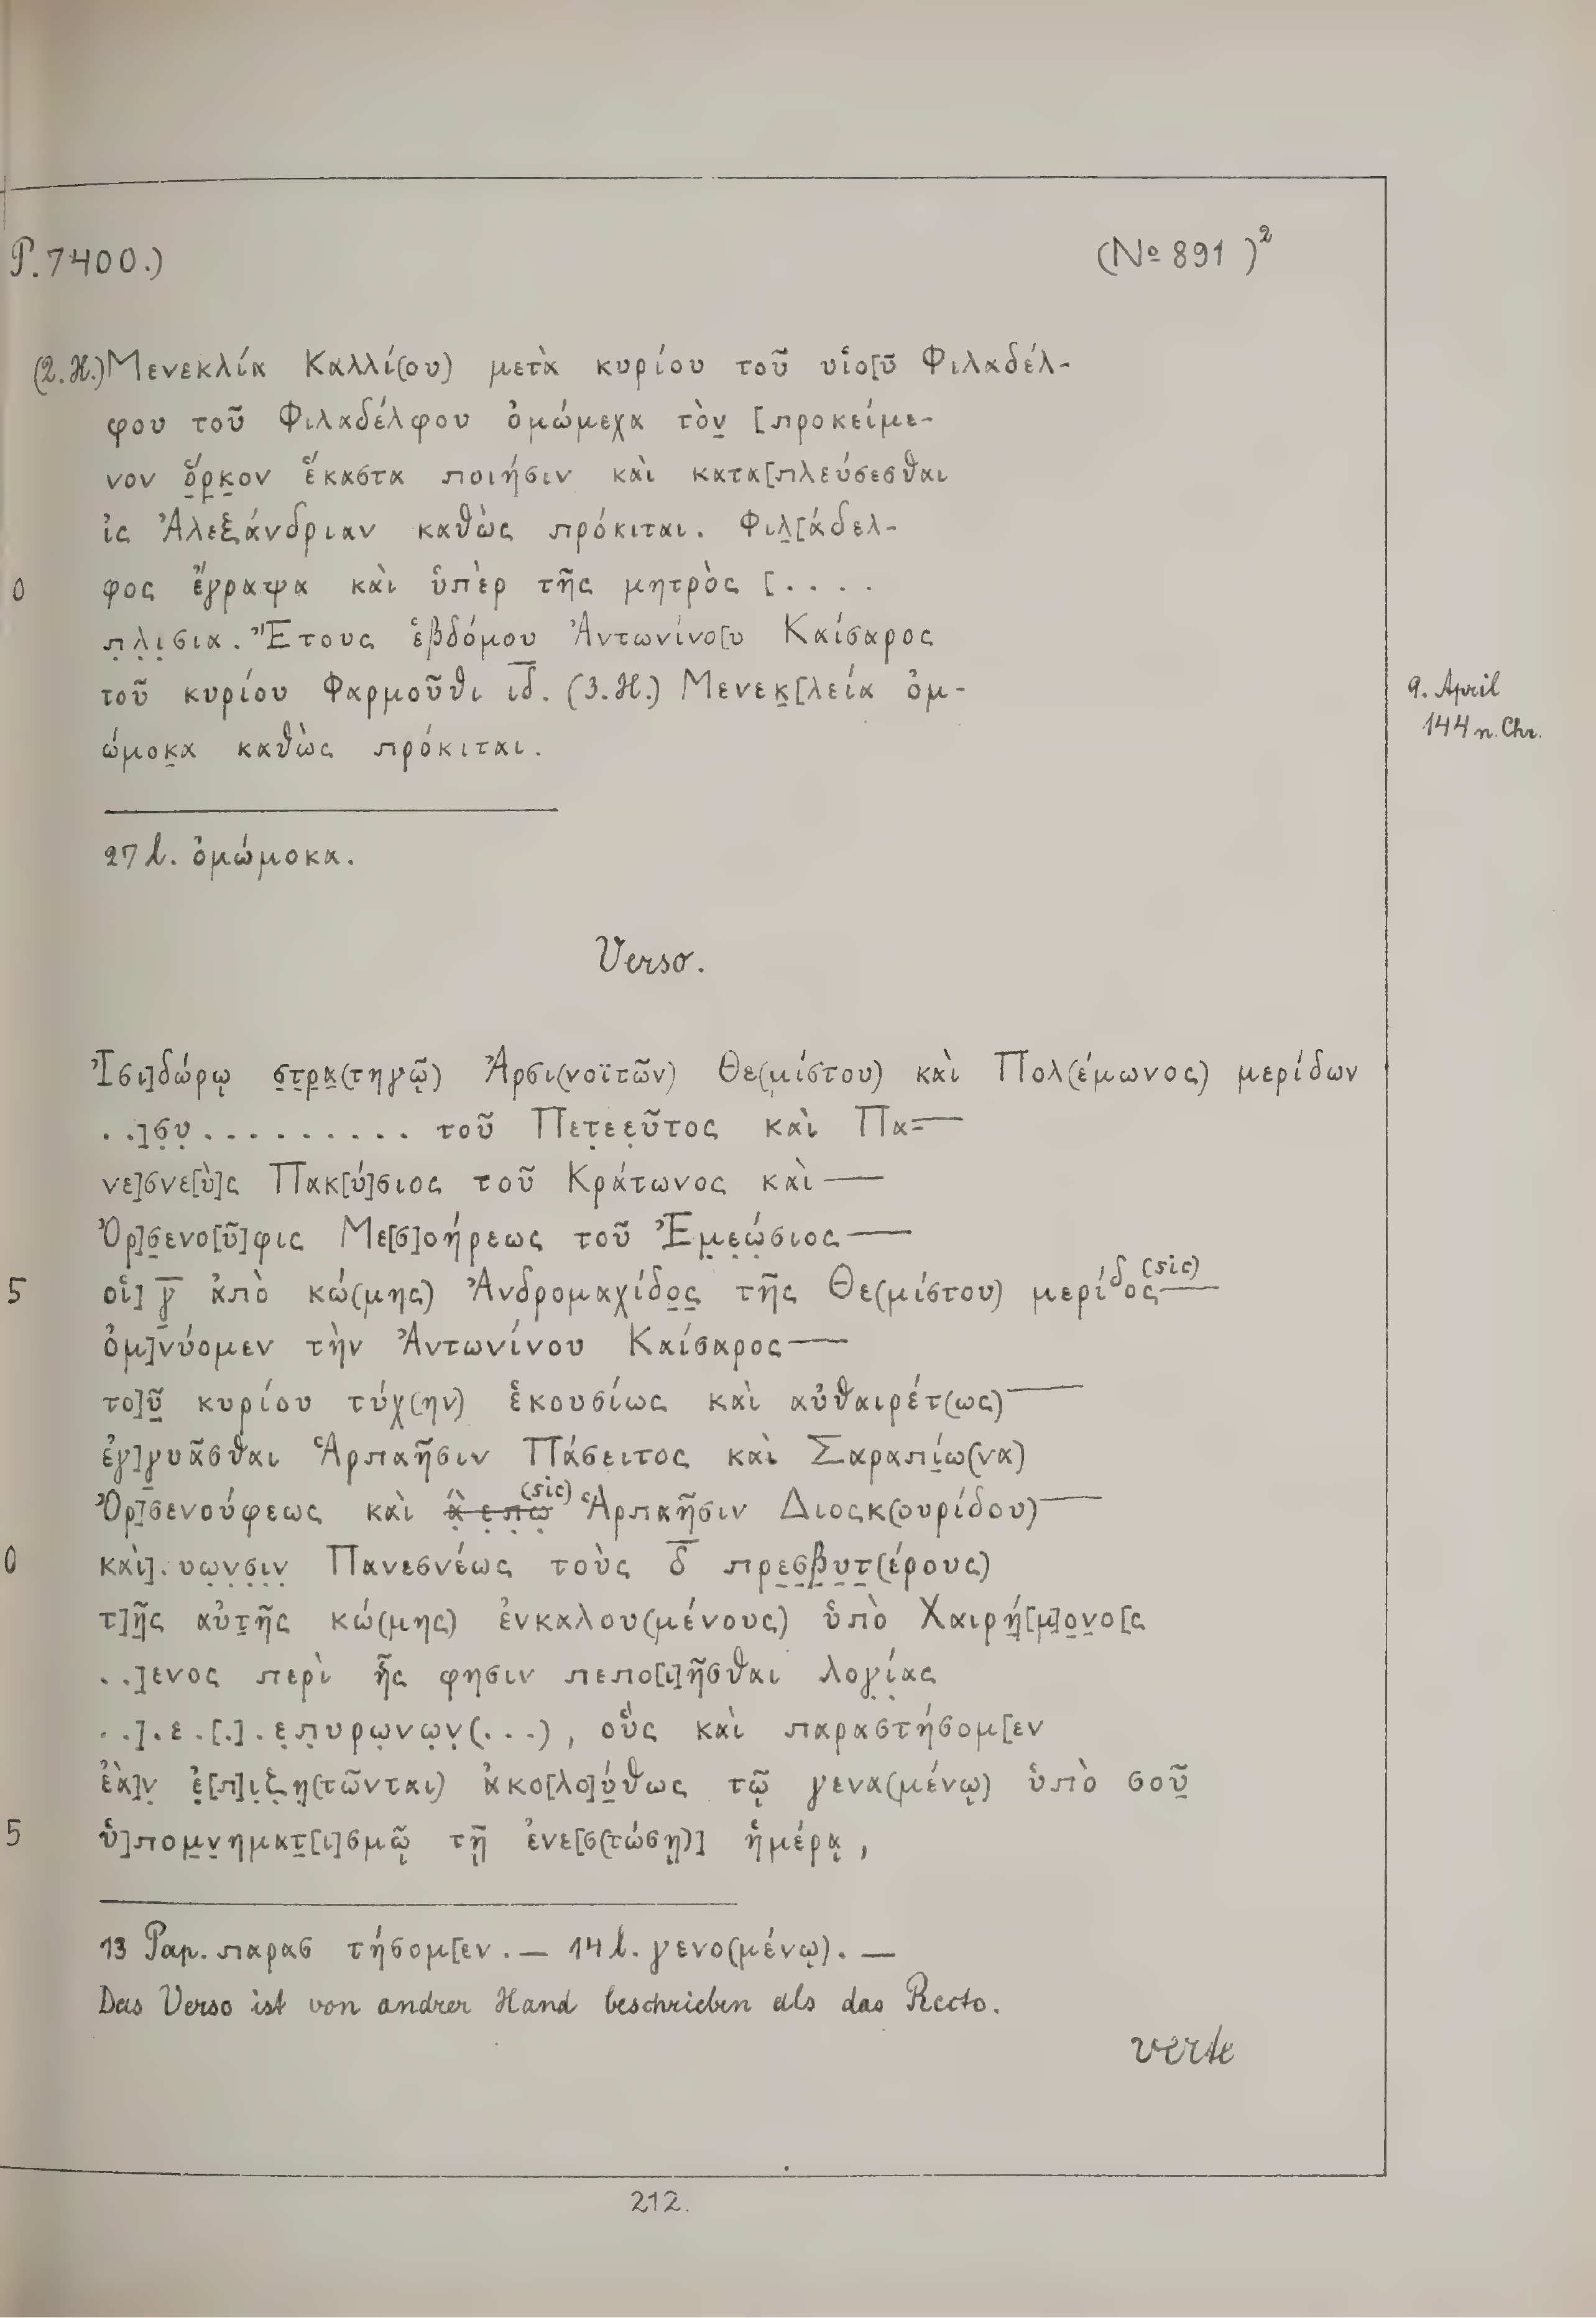 P. 7400.) (No 891 )²
(2. H.) Μενεκλία Καλλί(ου) μετὰ κυρίου τοῦ υἱο[ῦ Φιλαδέλ-
φου τοῦ Φιλαδέλφου ὀμώμεχα τὸν̣ [προκείμε-
νον ὅ̣ρ̣κ̣ον ἕκαστα ποιήσιν καὶ κατα[πλεύσεσθαι
ἰς Ἀλεξάνδριαν καθὼς πρόκιται. Φιλ̣[άδελ-
0 φος ἔγραψα καὶ ὑπὲρ τῆς μητρὸς [. . . .
π̣λ̣ι̣σια. Ἔτους ἑβδόμου Ἀντωνίνο[υ Καίσαρος
τοῦ κυρίου Φαρμοῦθι ι̅δ̅. (3. H.) Μενεκ̣[λεία ὀμ-
ώμοκ̣α καθὼς πρόκιται.
9. April
144 n. Chr.
27 l. ὀμώμοκα.
Verso.
Ἰσι]δώρῳ σ̣τ̣ρ̣α̣(τηγῷ) Ἀρσι(νοϊτῶν) Θε(μίστου) καὶ Πολ(έμωνος) μερίδων
. .]σ̣υ̣ . . . . . . . . . . τοῦ Πετ̣εε̣ῦτος καὶ Πα=—
νε]σνε[ὺ]ς Πακ[ύ]σιος τοῦ Κράτωνος καὶ —
Ὀρ]σ̣ενο[ῦ]φις Με[σ]οήρεως τοῦ Ἐμ̣ε̣ώ̣σιος —
5 οἱ] γ̣̅ ἀπὸ κώ(μης) Ἀνδρομαχίδο̣ς̣ τῆς Θε(μίστου) μερίδος (sic) —
ὀμ]νύομεν τὴν Ἀντωνίνου Καίσαρος —
το]ῦ̣ κυρίου τύχ(ην) ἑκουσίως καὶ αὐθαιρέτ(ως) —
ἐγ]γ̣υᾶσθαι Ἁρπαῆσιν Πάσειτος καὶ Σαραπί̣ω(να)
Ὀρ]σενούφεως καὶ ἃ̣ ε̣π̣ω̣ (sic) Ἁρπαῆσιν Διοσκ(ουρίδου) —
0 καὶ] . υω̣ν̣σ̣ι̣ν̣ Πανεσνέως τοὺς δ̅ πρε̣σ̣β̣υ̣τ̣(έρους)
τ]ῆ̣ς αὐτ̣ῆς κώ(μης) ἐνκαλου(μένους) ὑπὸ Χαιρή̣[μ]ο̣ν̣ο[ς
. .]ενος περὶ ἧς φησιν πεπο[ι]ῆσθαι λογ̣ί̣ας
. .] . ε . [.] . ε̣π̣υρω̣νω̣ν̣(. . .), οὓς καὶ παραστήσομ[εν
ἐὰ]ν̣ ἐ̣[π]ι̣ζ̣η̣(τῶνται) ἀκο[λο]ύ̣θως τῷ γενα(μένῳ) ὑπὸ σοῦ̣
5 ὑ]πομ̣ν̣ηματ̣[ι]σμῷ τῇ ἐνε[σ(τώσῃ)] ἡμέρᾳ,
13 Pap. παρασ τήσομ[εν. — 14 l. γενο(μένῳ). —
Das Verso ist von andrer Hand beschrieben als das Recto.
verte
212.